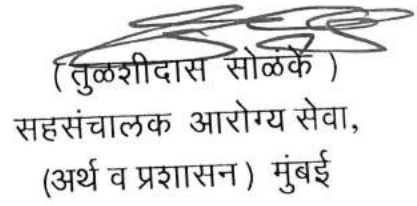 ( तुळशीदास सोळंके )
सहसंचालक आरोग्य सेवा,
(अर्थ व प्रशासन ) मुंबई